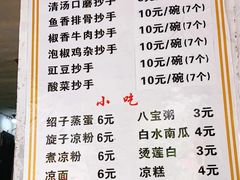 清汤口蘑抄手 10元/碗(7个)
鱼香排骨抄手 10元/碗(7个)
椒香牛肉抄手 10元/碗(7个)
泡椒鸡杂抄手 10元/碗(7个)
豇豆抄手 10元/碗(7个)
酸菜抄手 10元/碗(7个)
小吃
绍子蒸蛋 6元 八宝粥 3元
旋子凉粉 6元 白水南瓜 4元
煮凉粉 6元 烫莲白 3元
凉面 6元 凉糕 4元